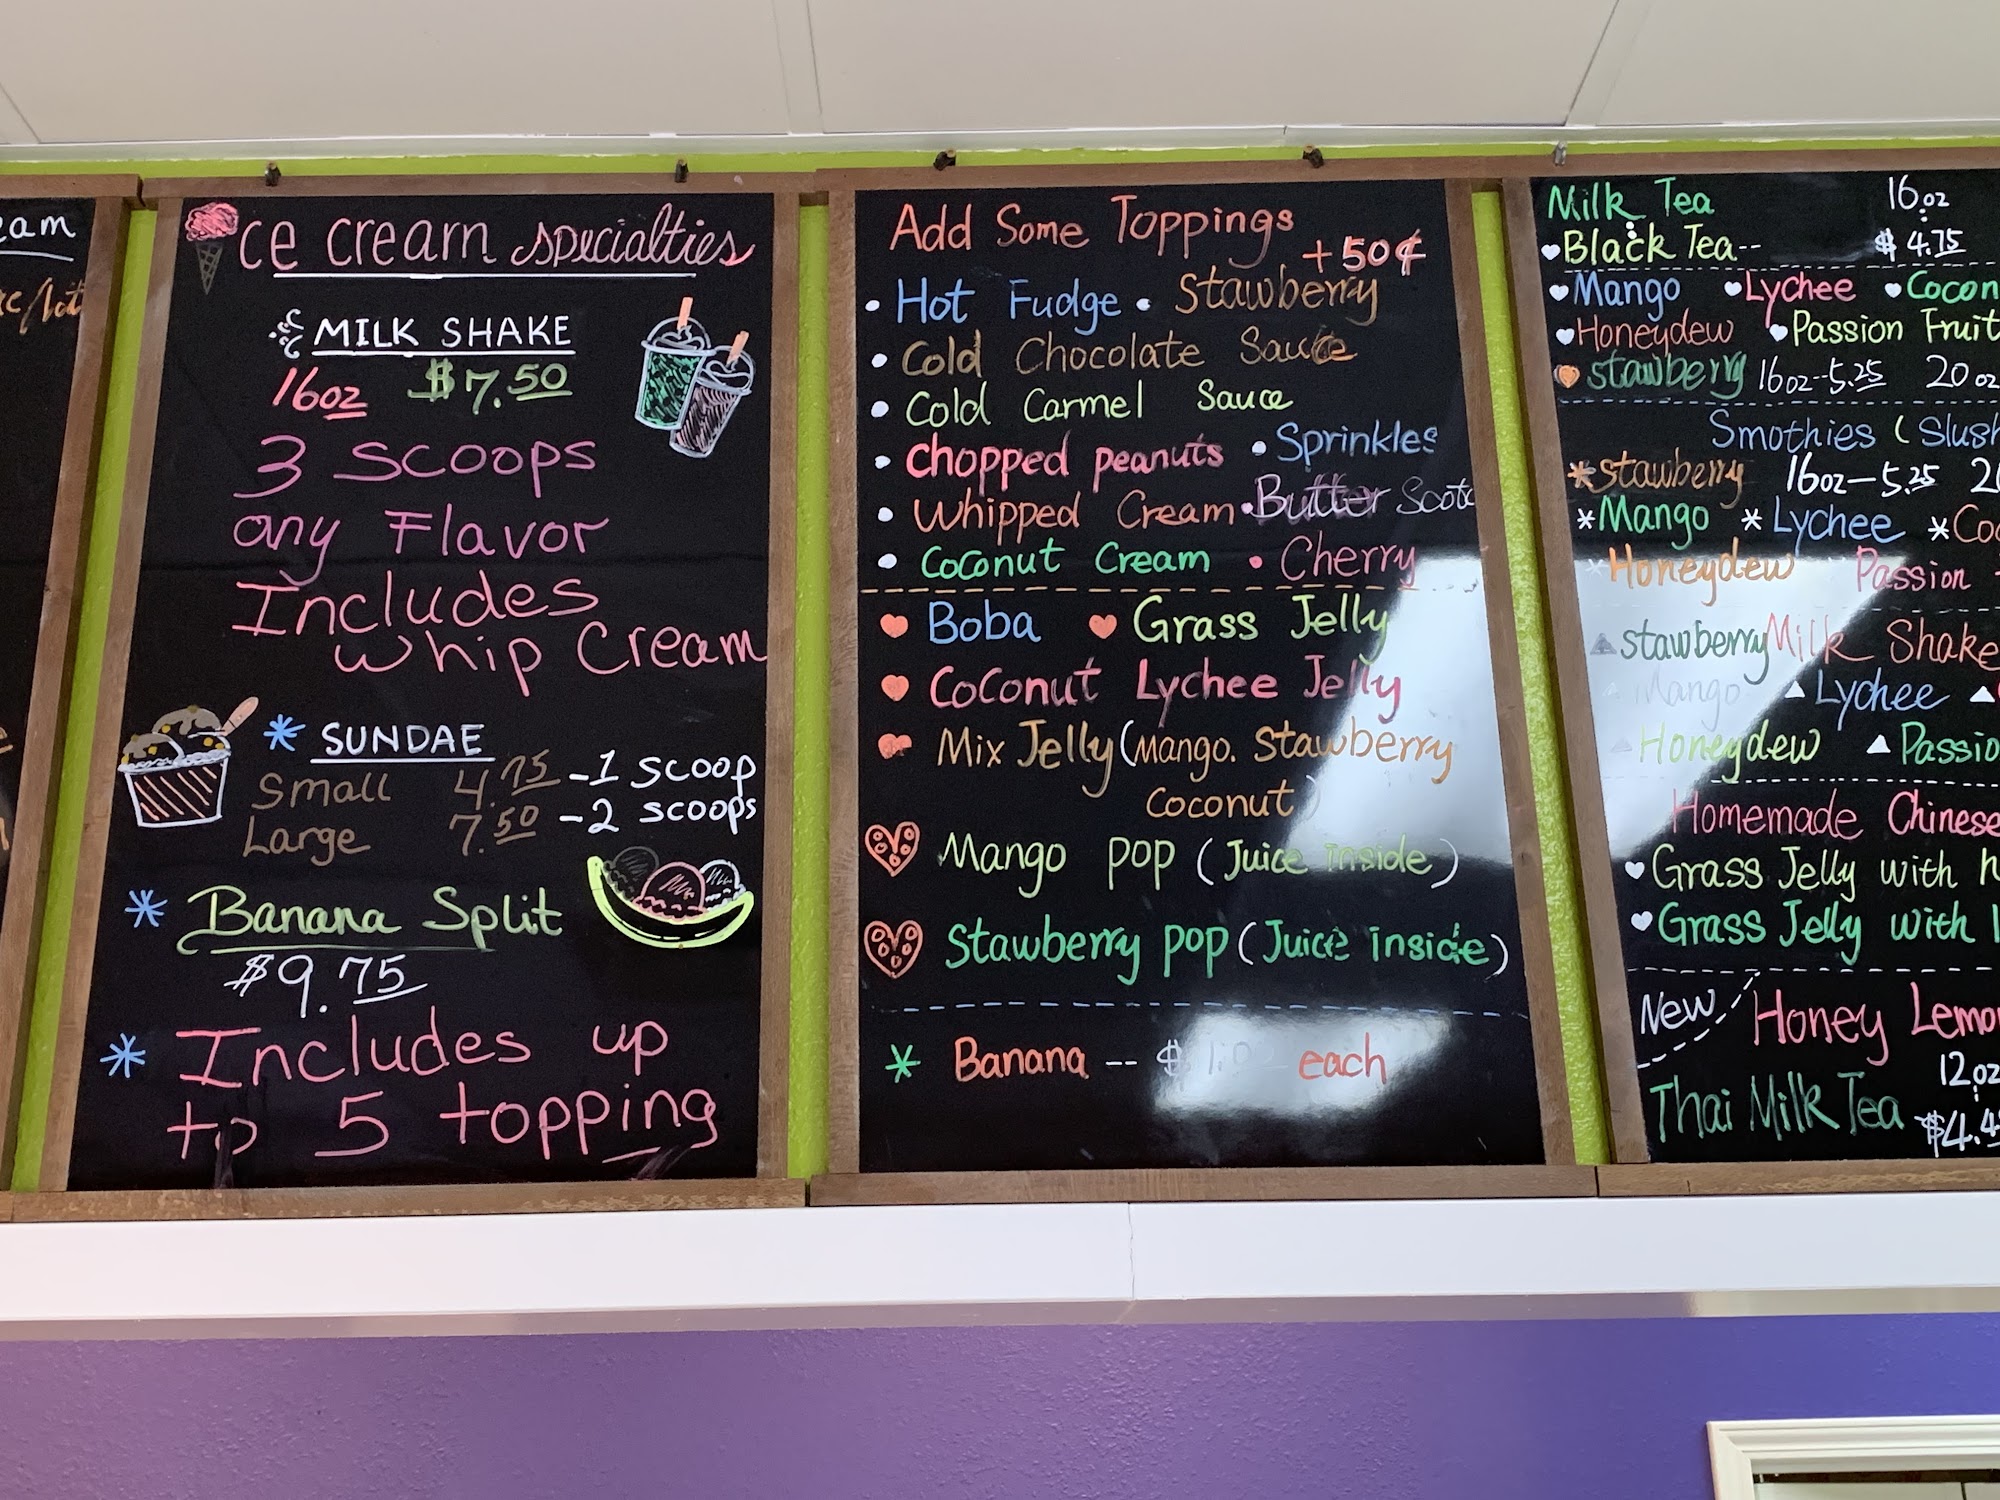 eam
ce cream specialties
MILK SHAKE
16oz $7.50
3 scoops
any Flavor
Includes
whip Cream
SUNDAE
Small 4.75 -1 scoop
Large 7.50 -2 scoops
Banana Split
$9.75
Includes up
to 5 topping
Add Some Toppings
+50¢
• Hot Fudge • Stawberry
• Cold Chocolate Sauce
• Cold Carmel Sauce
• chopped peanuts • Sprinkles
• Whipped Cream • Butter Scotc
• Coconut Cream • Cherry
Boba Grass Jelly
Coconut Lychee Jelly
Mix Jelly (Mango. Stawberry
Coconut)
Mango pop (Juice inside)
Stawberry pop (Juice inside)
* Banana -- $1.00 each
Milk Tea 16oz
Black Tea-- $4.75
Mango Lychee Cocon
Honeydew Passion Fruit
stawberry 16oz--5.25 20oz
Smothies (Slush
*stawberry 16oz—5.25 2
*Mango *Lychee *Coc
*Honeydew Passion
stawberry Milk Shake
Mango Lychee
Honeydew Passio
Homemade Chinese
Grass Jelly with h
Grass Jelly with
New Honey Lemo
12oz
Thai Milk Tea $4.4